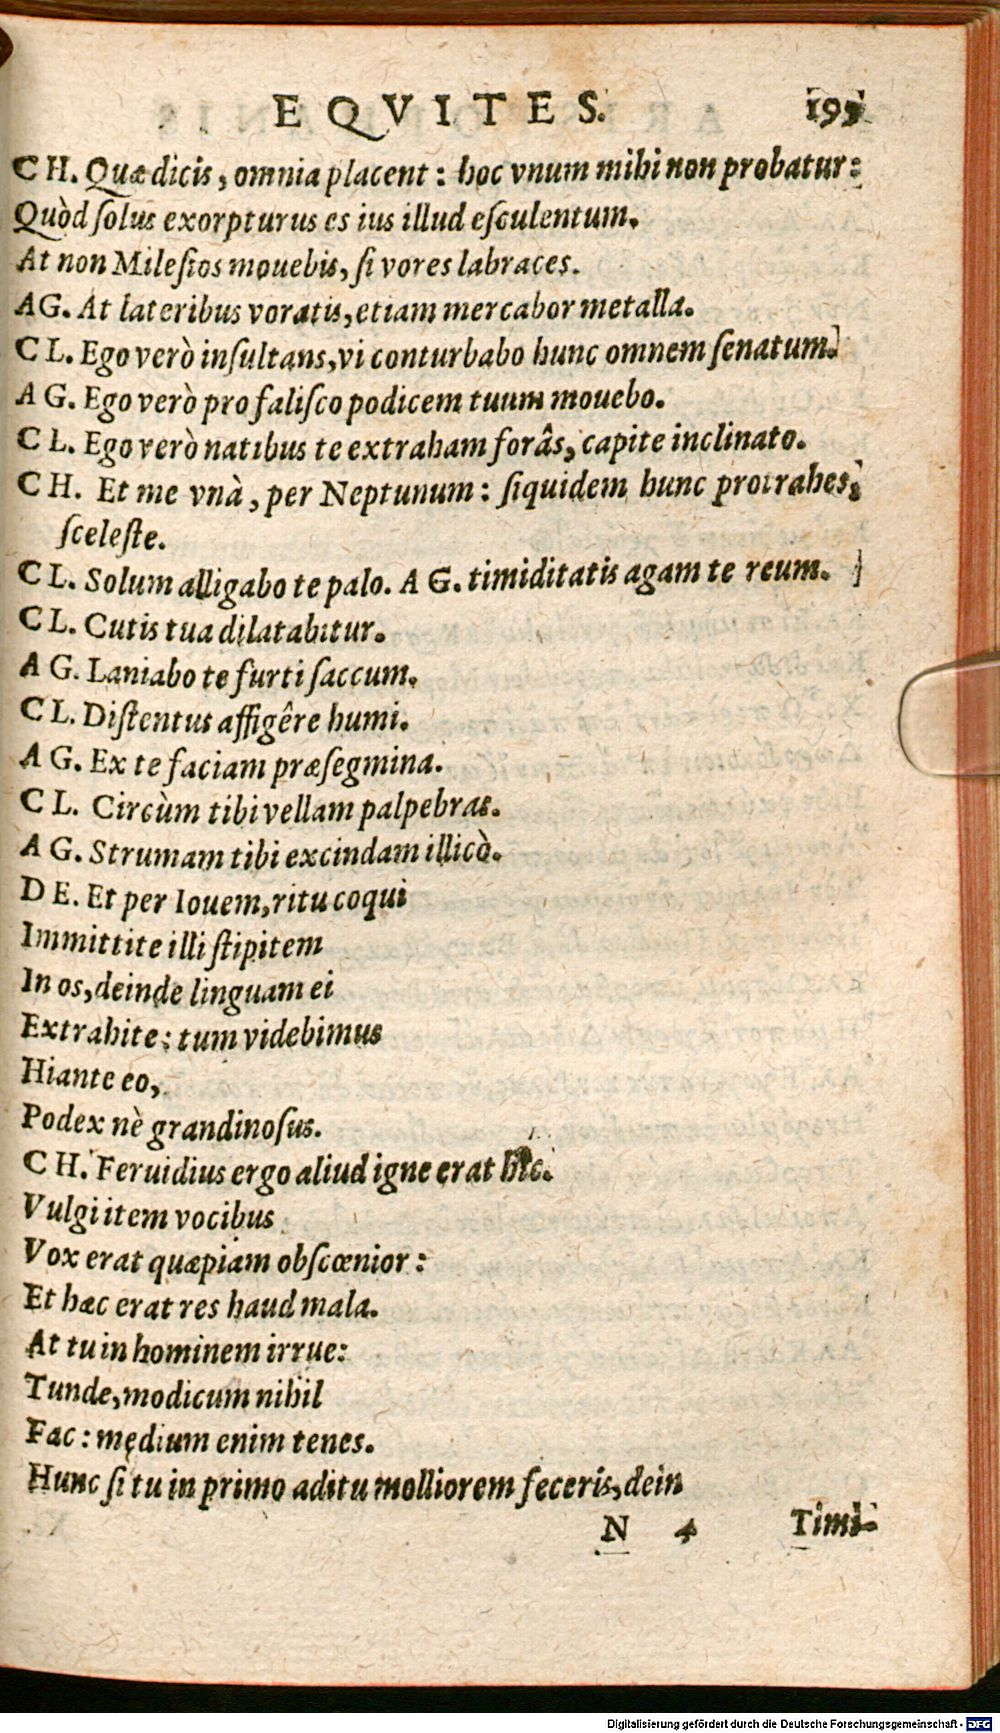 EQVITES. 199
CH. Quæ dicis, omnia placent: hoc vnum mihi non probatur:
Quòd ſolus exorpturus es ius illud eſculentum.
At non Mileſios mouebis, ſi vores labraces.
AG. At lateribus voratis, etiam mercabor metalla.
CL. Ego verò inſultans, vi conturbabo hunc omnem ſenatum.
AG. Ego verò pro faliſco podicem tuum mouebo.
CL. Ego verò natibus te extraham forâs, capite inclinato.
CH. Et me vnà, per Neptunum: ſiquidem hunc protrahes,
ſceleſte.
CL. Solum alligabo te palo. AG. timiditatis agam te reum.
CL. Cutis tua dilatabitur.
AG. Laniabo te furti ſaccum.
CL. Diſtentus affigêre humi.
AG. Ex te faciam præſegmina.
CL. Circùm tibi vellam palpebras.
AG. Strumam tibi excindam illicò.
DE. Et per Iouem, ritu coqui
Immittite illi ſtipitem
In os, deinde linguam ei
Extrahite: tum videbimus
Hiante eo,
Podex nè grandinoſus.
CH. Feruidius ergo aliud igne erat hîc.
Vulgi item vocibus
Vox erat quæpiam obſcœnior:
Et hæc erat res haud mala.
At tu in hominem irrue:
Tunde, modicum nihil
Fac: medium enim tenes.
Hunc ſi tu in primo aditu molliorem feceris, dein
N 4 Timi-
Digitalisierung gefördert durch die Deutsche Forschungsgemeinschaft - DFG